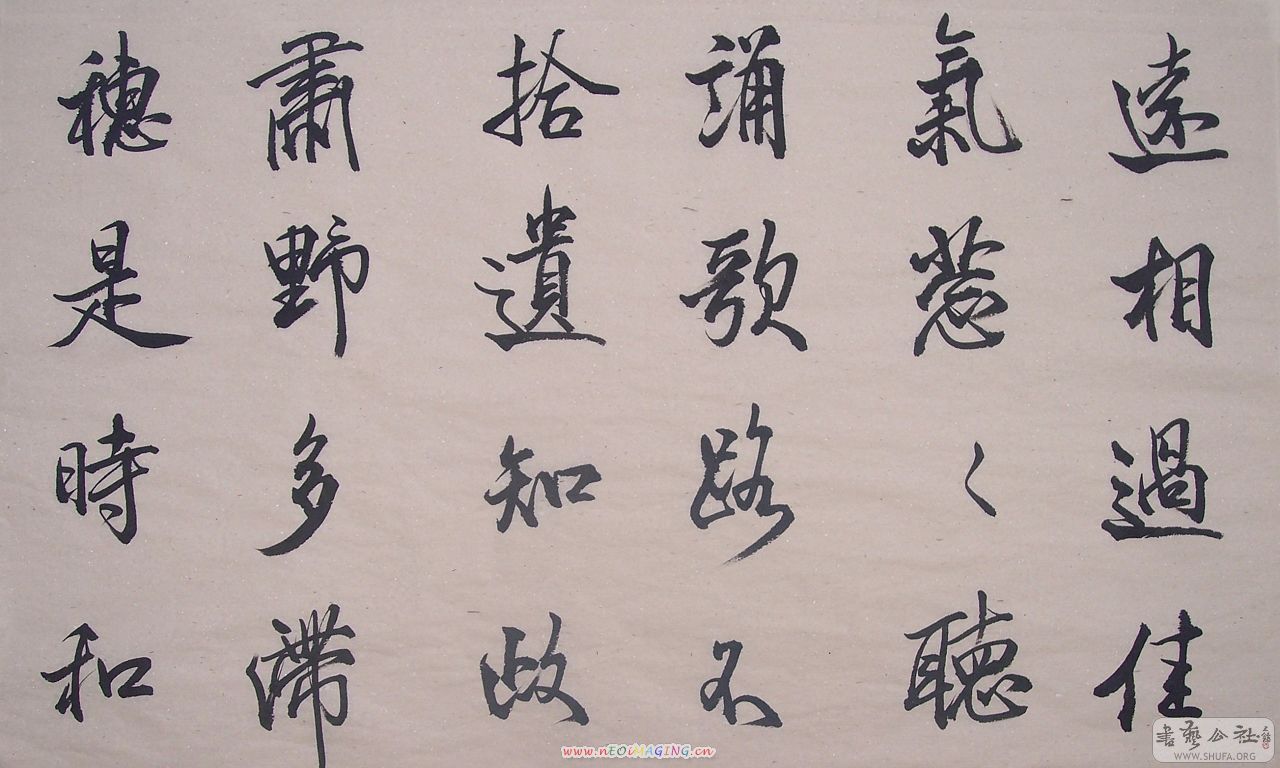 遠相過佳
氣葱〻聽
誦歌路不
拾遺知政
肅野多滯
穗是時和
www.nEOiMAGING.cn
書藝公社
WWW.SHUFA.ORG